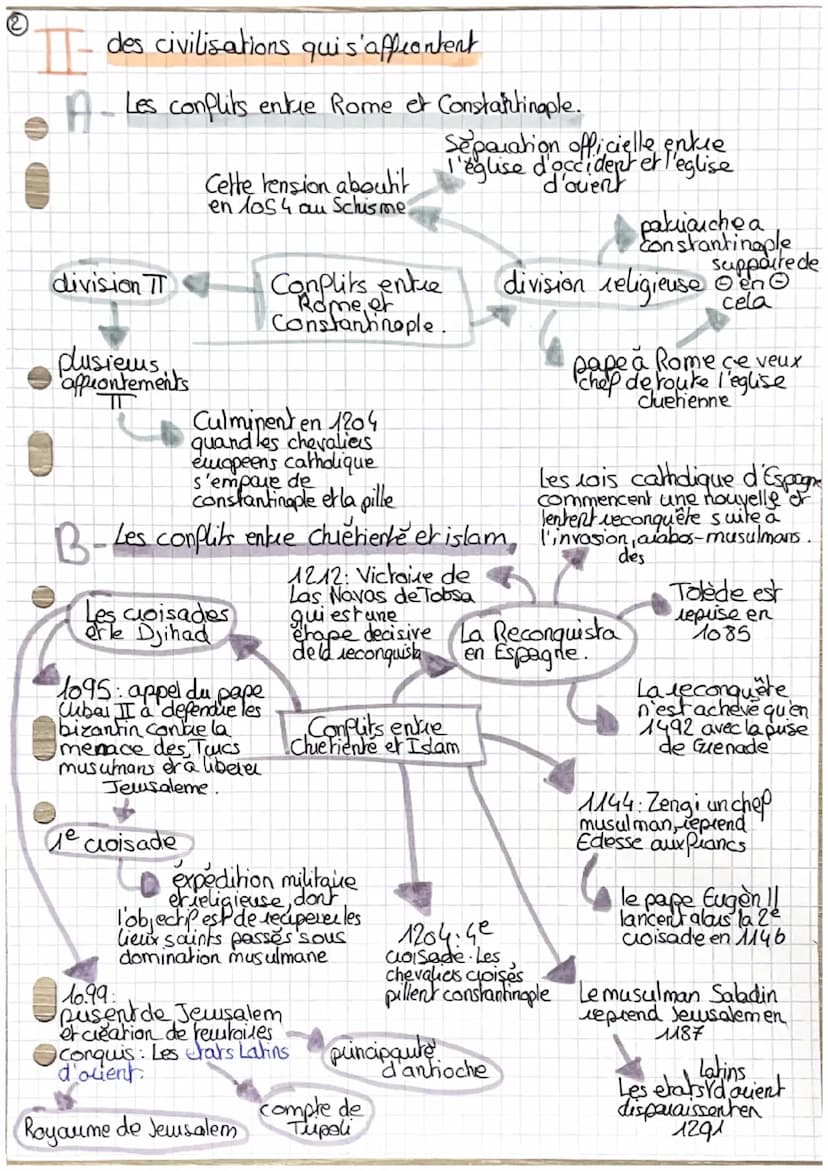 2
II- des civilisations qui s'affrontent
A- Les conflits entre Rome et Constantinople.
Séparation officielle entre
l'église d'occident et l'église
d'orient
Cette tension aboutit
en 1054 au Schisme
patriarche a
constantinople
supporte de
⊖ en ⊖
cela
division π
Conflits entre
Rome et
Constantinople.
division religieuse
plusieurs
affrontements
π
pape à Rome ce veux
chef de toute l'église
chretienne
Culminent en 1204
quand les chevaliers
europeens catholique
s'empare de
constantinople et la pille
Les rois catholique d'Espagne
commencent une nouvelle et
lentent reconquête suite à
l'invasion, arabos-musulmans.
des
B- Les conflits entre chrétienté et islam,
1212: Victoire de
Las Navas de Tobsa
qui est une
étape decisive
de la reconquista
Les croisades
et le Djihad
La Reconquista
en Espagne.
Tolède est
reprise en
1085
1095: appel du pape
Urbai II à défendre les
bizantin contre la
menace des Turcs
musulmans et à liberer
Jerusaleme.
Conflits entre
Chretienté et Islam
La reconquête
n'est achevé qu'en
1492 avec la prise
de Grenade
1144: Zengi un chef
musulman, reprend
Edesse aux francs
1e croisade
expédition militaire
et religieuse, dont
l'objectif est de recuperer les
lieux saints passés sous
domination musulmane
le pape Eugèn II
lancent alors la 2e
croisade en 1146
1204: 4e
croisade. Les
chevaliers croisés
pillent constantinople
Le musulman Saladin
reprend Jerusalem en
1187
1099:
prisent de Jerusalem
et création de territoires
conquis: Les etats Latins
d'orient.
principauté
d'antioche
compte de
Tripoli
Royaume de Jerusalem
latins
Les etats d'orient
disparaissent en
1291